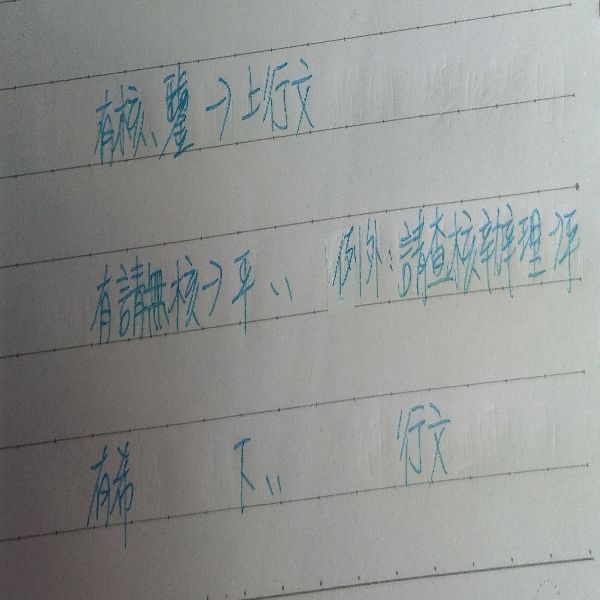 有核、鑒→上行文
有請無核→平〃 例外:請查核辦理→平
有希 下〃 行文